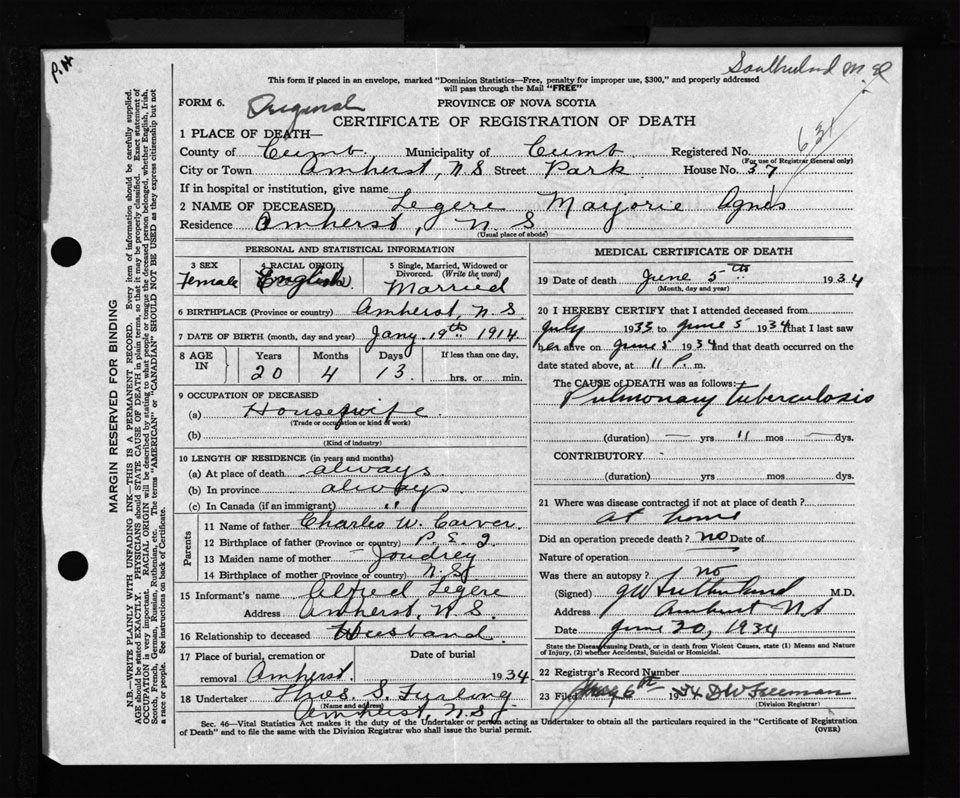 P.N.
Southerland M D
This form if placed in an envelope, marked "Dominion Statistics—Free, penalty for improper use, $300," and properly addressed
will pass through the Mail "FREE"
FORM 6. Original PROVINCE OF NOVA SCOTIA
CERTIFICATE OF REGISTRATION OF DEATH
1 PLACE OF DEATH—
County of Cumb. Municipality of Cumb Registered No. 631
(For use of Registrar General only)
City or Town Amherst, N.S Street Park. House No. 37
If in hospital or institution, give name
2 NAME OF DECEASED Legere Marjorie Agnes
Residence Amherst, N.S
(Usual place of abode)
PERSONAL AND STATISTICAL INFORMATION
3 SEX Female
4 RACIAL ORIGIN English
5 Single, Married, Widowed or
Divorced. (Write the word)
Married
6 BIRTHPLACE (Province or country) Amherst, N.S.
7 DATE OF BIRTH (month, day and year) Jany. 19th 1914
8 AGE IN Years Months Days If less than one day,
20 4 13 hrs. or min.
9 OCCUPATION OF DECEASED
(a) Housewife
(Trade or occupation or kind of work)
(b)
(Kind of industry)
10 LENGTH OF RESIDENCE (in years and months)
(a) At place of death always
(b) In province always
(c) In Canada (if an immigrant) "
Parents
11 Name of father Charles W. Carver.
12 Birthplace of father (Province or country) P.E.I
13 Maiden name of mother Joudrey
14 Birthplace of mother (Province or country) N.S
15 Informant's name Alfred Legere
Address Amherst, N.S.
16 Relationship to deceased Husband.
17 Place of burial, cremation or Date of burial
removal Amherst. 1934
18 Undertaker Thos. S. Furlong
(Name and address)
Amherst N.S
MEDICAL CERTIFICATE OF DEATH
19 Date of death June 5th 1934
(Month, day and year)
20 I HEREBY CERTIFY that I attended deceased from
July 1933 to June 5 1934 that I last saw
her alive on June 5 1934 and that death occurred on the
date stated above, at 11 P. m.
The CAUSE of DEATH was as follows:
Pulmonary tuberculosis
(duration) — yrs 11 mos — dys.
CONTRIBUTORY
(duration) yrs. mos. dys.
21 Where was disease contracted if not at place of death?
at home
Did an operation precede death? no Date of
Nature of operation
Was there an autopsy? no
(Signed) M.D.
Address Amherst NS
Date June 20, 1934
State the Disease causing Death, or in death from Violent Causes, state (1) Means and Nature
of Injury, (2) whether Accidental, Suicidal or Homicidal.
22 Registrar's Record Number
23 Filed 6th 1934. D W Freeman
(Division Registrar)
Sec. 46—Vital Statistics Act makes it the duty of the Undertaker or person acting as Undertaker to obtain all the particulars required in the "Certificate of Registration
of Death" and to file the same with the Division Registrar who shall issue the burial permit. (OVER)
MARGIN RESERVED FOR BINDING
N.B.—WRITE PLAINLY WITH UNFADING INK—THIS IS A PERMANENT RECORD. Every item of information should be carefully supplied.
AGE should be stated EXACTLY. PHYSICIANS should STATE CAUSE OF DEATH in plain terms, so that it may be properly classified. Exact statement of
OCCUPATION is very important. RACIAL ORIGIN will be described by stating to what people or tongue the deceased person belonged, whether English, Irish,
Scotch, French, German, Russian, Ruthenian, etc. The terms "AMERICAN" or "CANADIAN" SHOULD NOT BE USED as they express citizenship but not
a race or people. See instructions on back of Certificate.